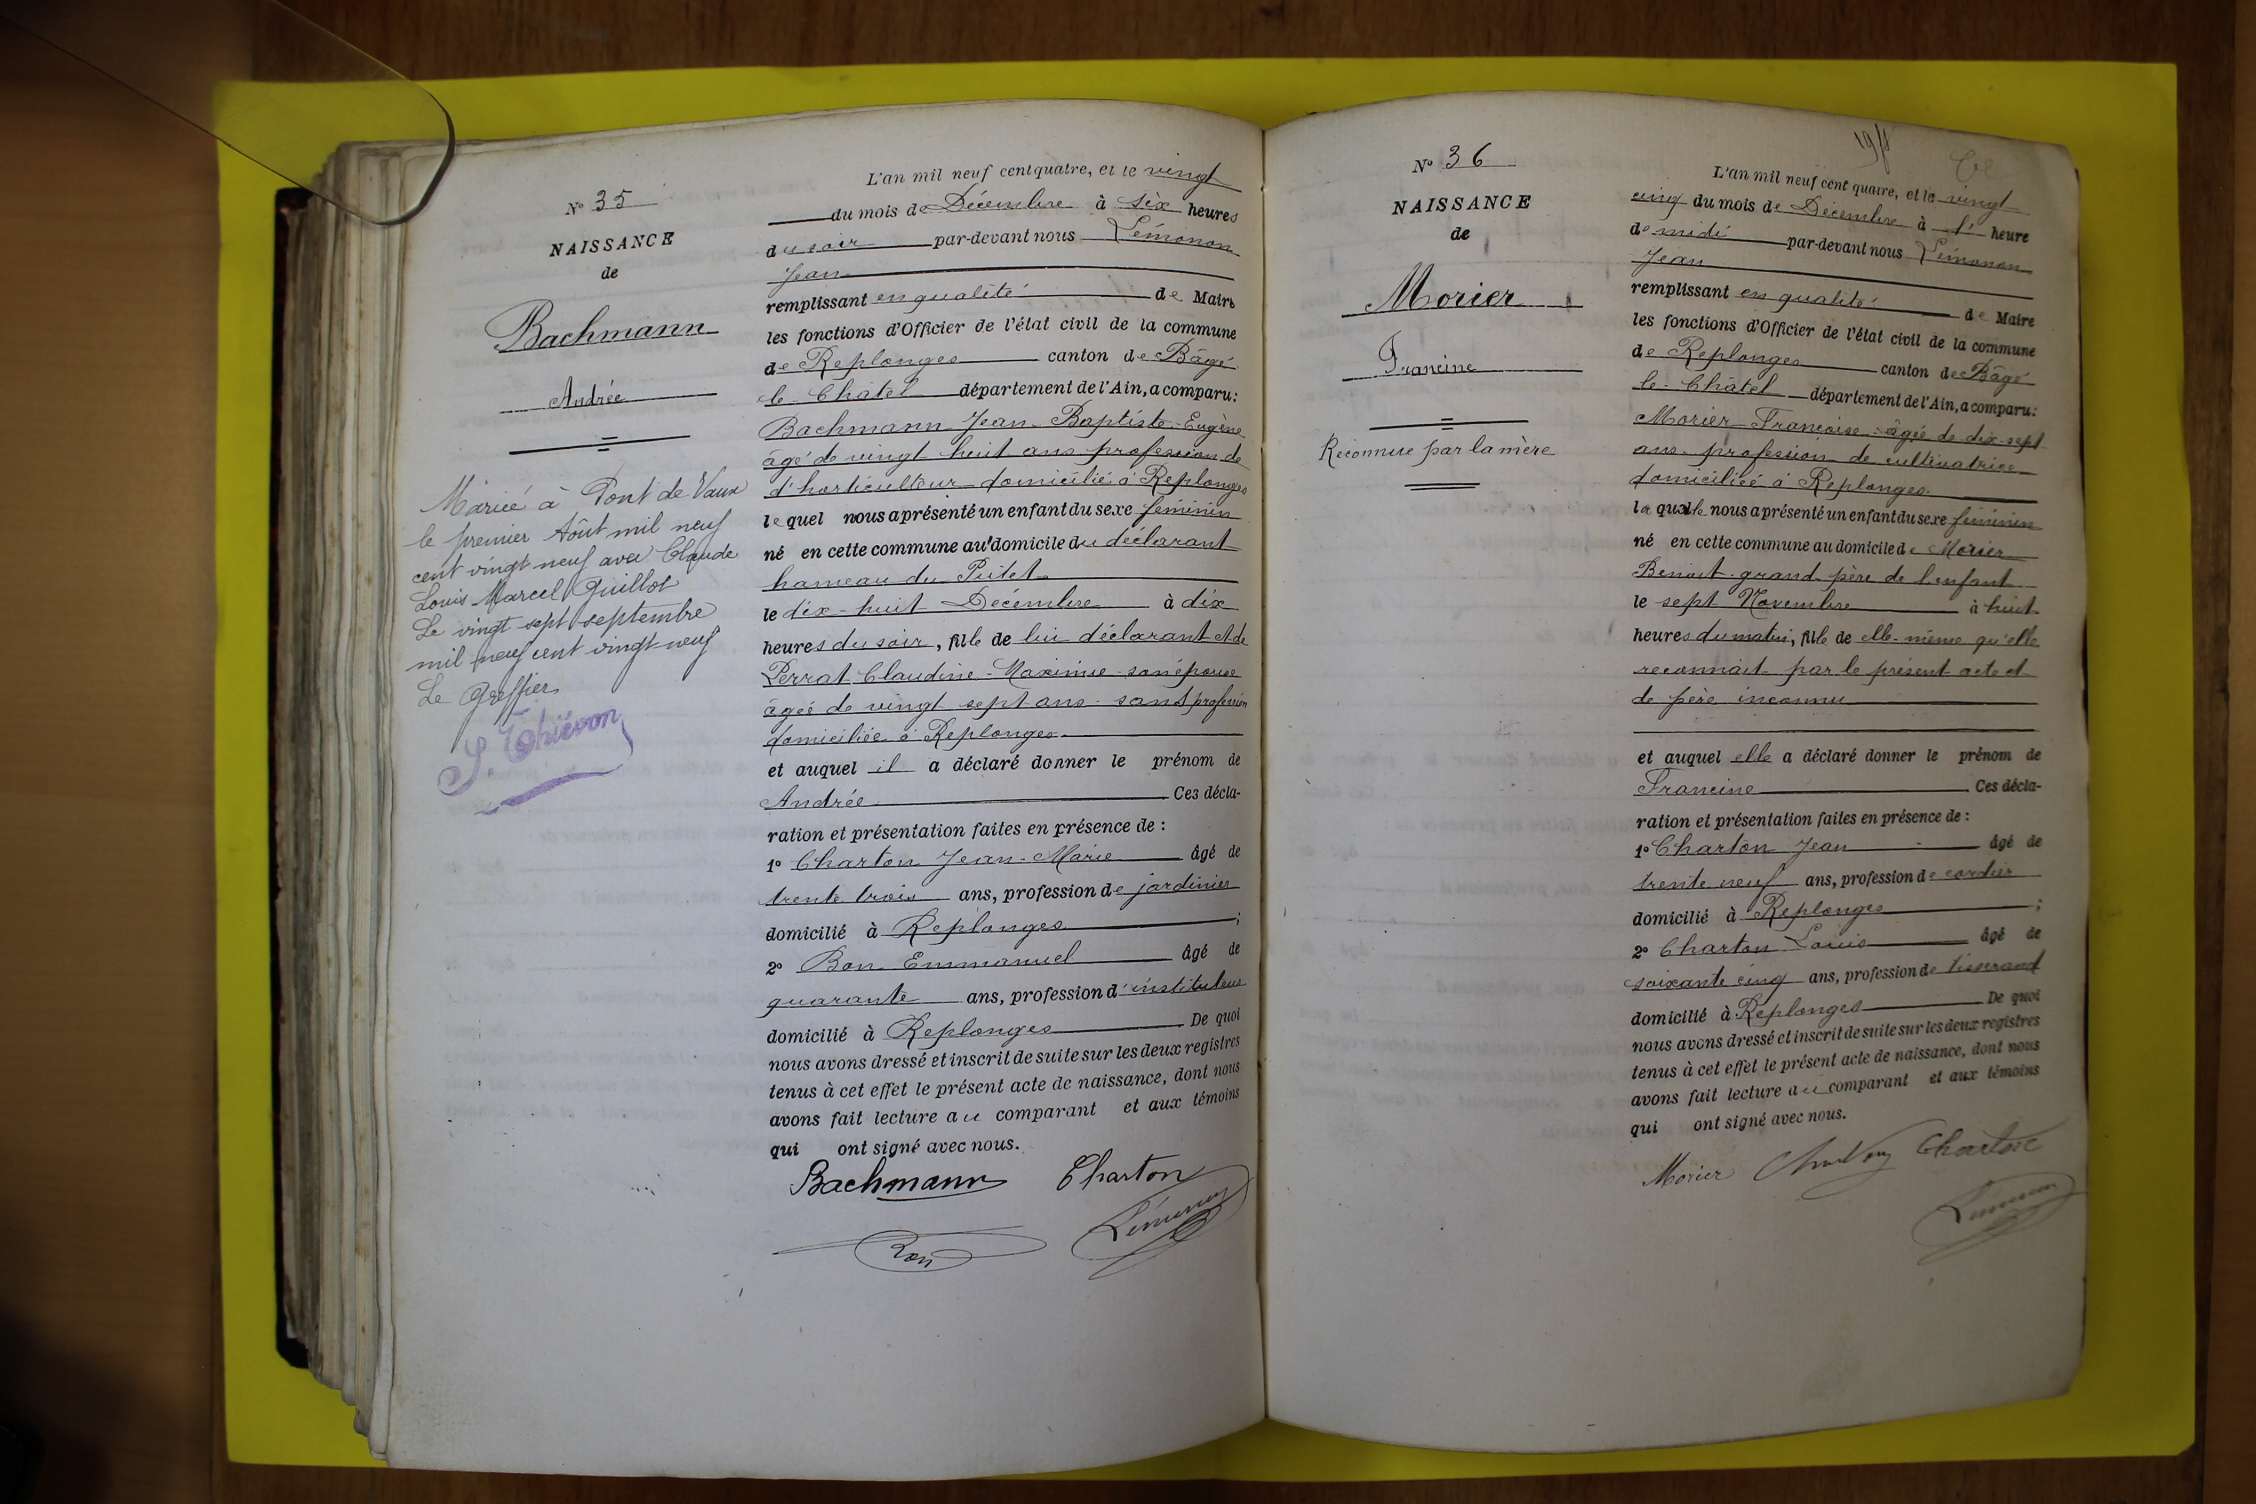 N° 35
NAISSANCE
de
Bachmann
Andrée
Mariée à Pont de Vaux
le premier Aôut mil neuf
cent vingt neuf avec Claude
Louis Marcel Guillot
Le vingt sept septembre
mil neuf cent vingt neuf
Le Greffier
S. Thiévon
L'an mil neuf cent quatre, et le vingt
du mois de Décembre à six heures
du soir par-devant nous Lémonon
Jean
remplissant en qualité de Maire
les fonctions d'Officier de l'état civil de la commune
de Replonges canton de Bâgé
le Châtel département de l'Ain, a comparu:
Bachmann Jean-Baptiste-Eugène
âgé de vingt huit ans profession de
d'horticulteur domicilié à Replonges
lequel nous a présenté un enfant du sexe féminin
né en cette commune au domicile du déclarant
hameau du
le dix-huit Décembre à dix
heures du soir, fille de lui déclarant et de
Perrat Claudine-Maximie son épouse
âgée de vingt sept ans sans profession
domiciliée à Replonges
et auquel il a déclaré donner le prénom de
Andrée Ces décla-
ration et présentation faites en présence de :
1° Charton Jean-Marie âgé de
trente trois ans, profession de jardinier
domicilié à Replonges ;
2° Bon Emmanuel âgé de
quarante ans, profession d'instituteur
domicilié à Replonges De quoi
nous avons dressé et inscrit de suite sur les deux registres
tenus à cet effet le présent acte de naissance, dont nous
avons fait lecture au comparant et aux témoins
qui ont signé avec nous.
Bachmann Charton
Bon Lémonon
198
N° 36
NAISSANCE
de
Morier
Francine
Reconnue par la mère
L'an mil neuf cent quatre, et le vingt
cinq du mois de Décembre à 1 heure
de midi par-devant nous Lémonon
Jean
remplissant en qualité de Maire
les fonctions d'Officier de l'état civil de la commune
de Replonges canton de Bâgé
le Châtel département de l'Ain, a comparu:
Morier Françoise âgée de dix-sept
ans profession de cultivatrice
domiciliée à Replonges
laquelle nous a présenté un enfant du sexe féminin
né en cette commune au domicile de Morier
Benoit grand père de l'enfant
le sept Novembre à huit
heures du matin, fille de elle-même qu'elle
reconnait par le présent acte et
de père inconnu
et auquel elle a déclaré donner le prénom de
Francine Ces décla-
ration et présentation faites en présence de :
1° Charton Jean âgé de
trente neuf ans, profession de cordier
domicilié à Replonges ;
2° Charton Louis âgé de
soixante cinq ans, profession de tisserand
domicilié à Replonges De quoi
nous avons dressé et inscrit de suite sur les deux registres
tenus à cet effet le présent acte de naissance, dont nous
avons fait lecture au comparant et aux témoins
qui ont signé avec nous.
Morier Charton Charton
Lémonon